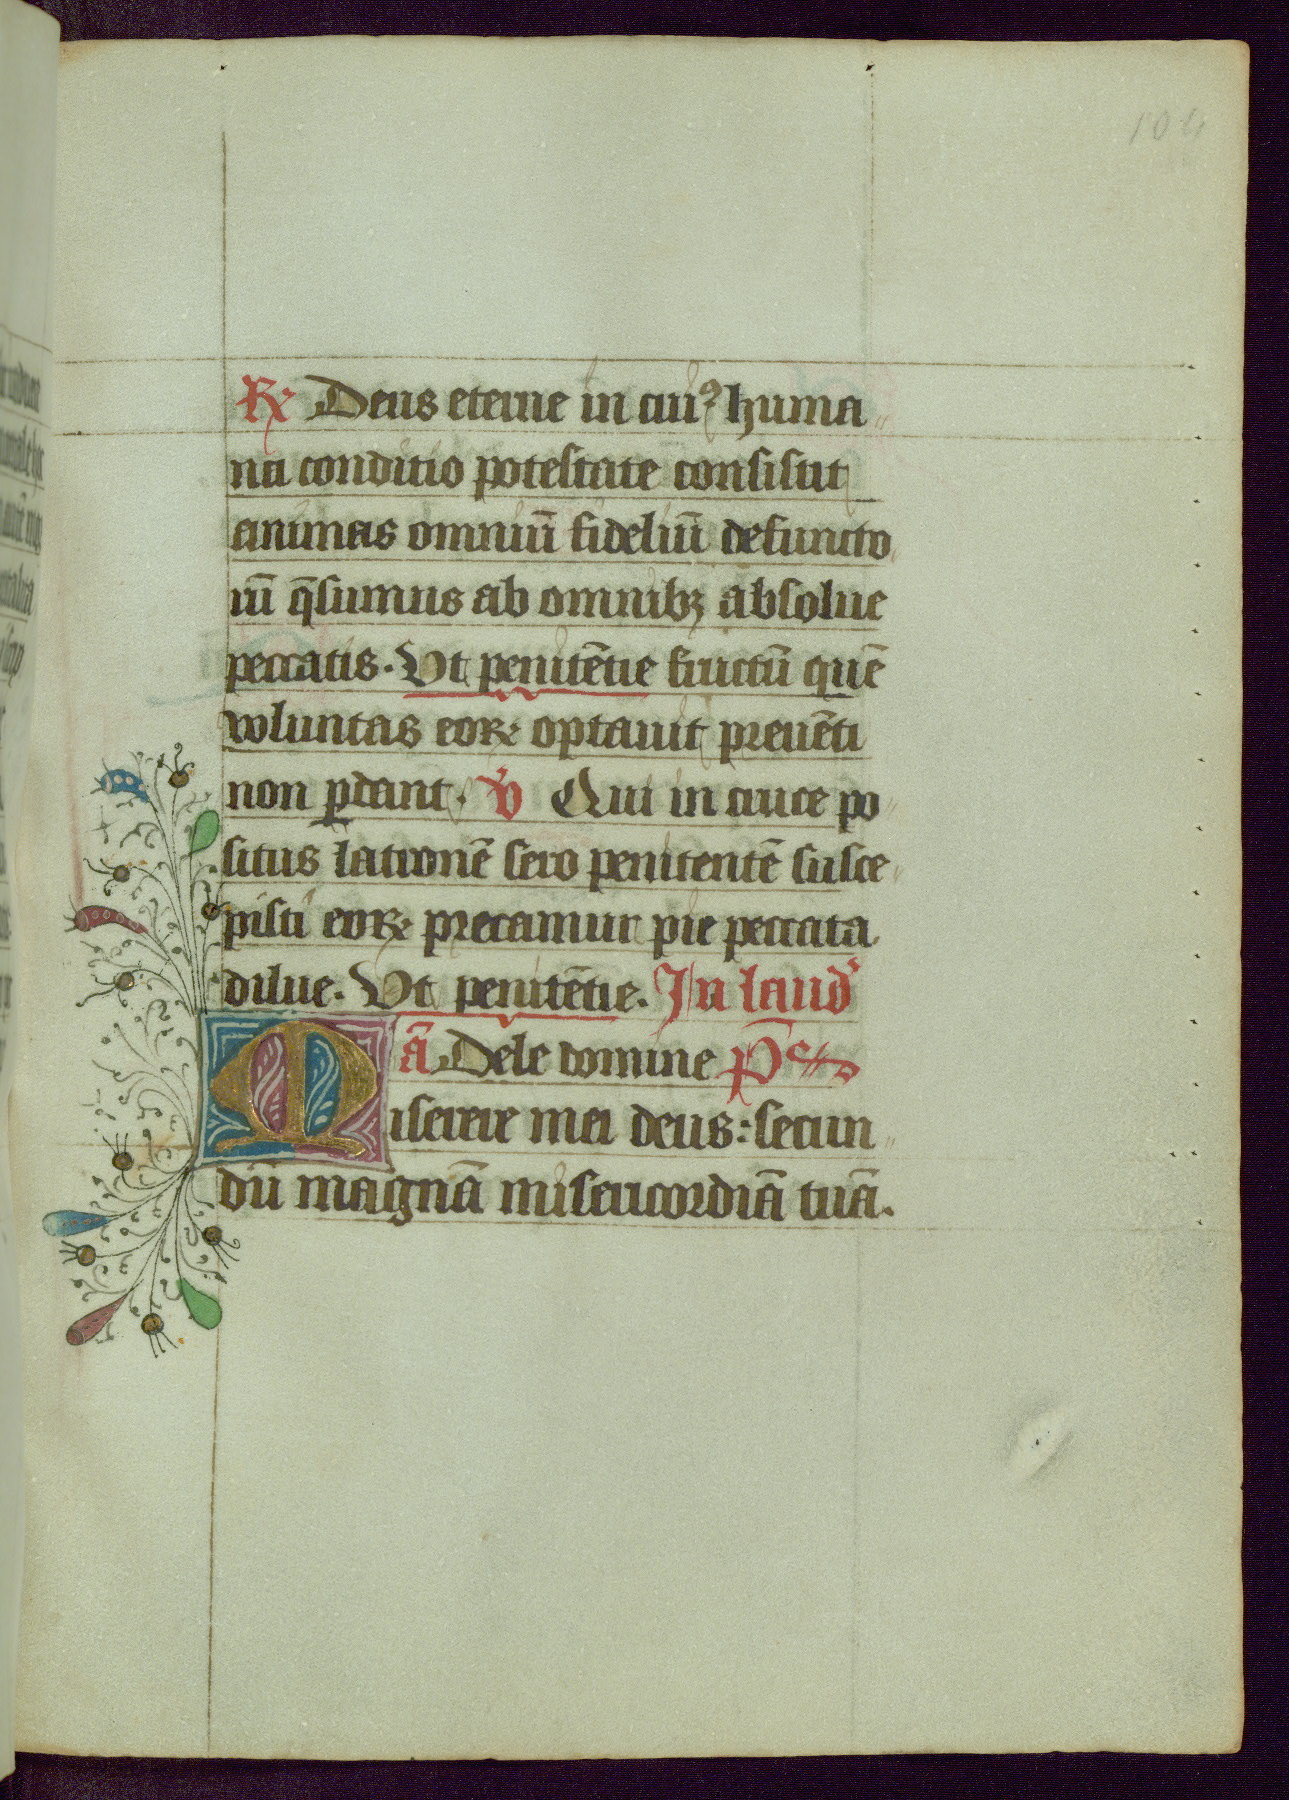 104
R Deus eterne in cuiꝰ huma
na conditio potestate consistit
animas omniū fidelium̄ defuncto
rū q̄sumus ab omnibꝫ absolue
peccatis. Vt penitētie fructū quē
voluntas eoꝝ optauit preuēti
non ꝑdant. v̄ Qui in cruce po
situs latronē sero penitentē susce
pisti eoꝝ precamur pie peccata
dilue. Vt penitētie. In laud
ā Dele domine Ps
Miserere mei deus: secun
dū magnā misericordiā tuā.